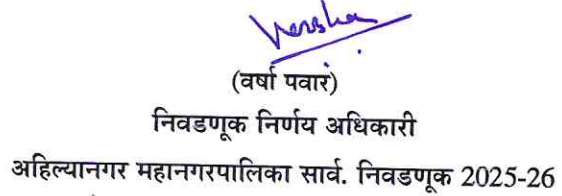 Varsha
(वर्षा पवार)
निवडणूक निर्णय अधिकारी
अहिल्यानगर महानगरपालिका सार्व. निवडणूक 2025-26